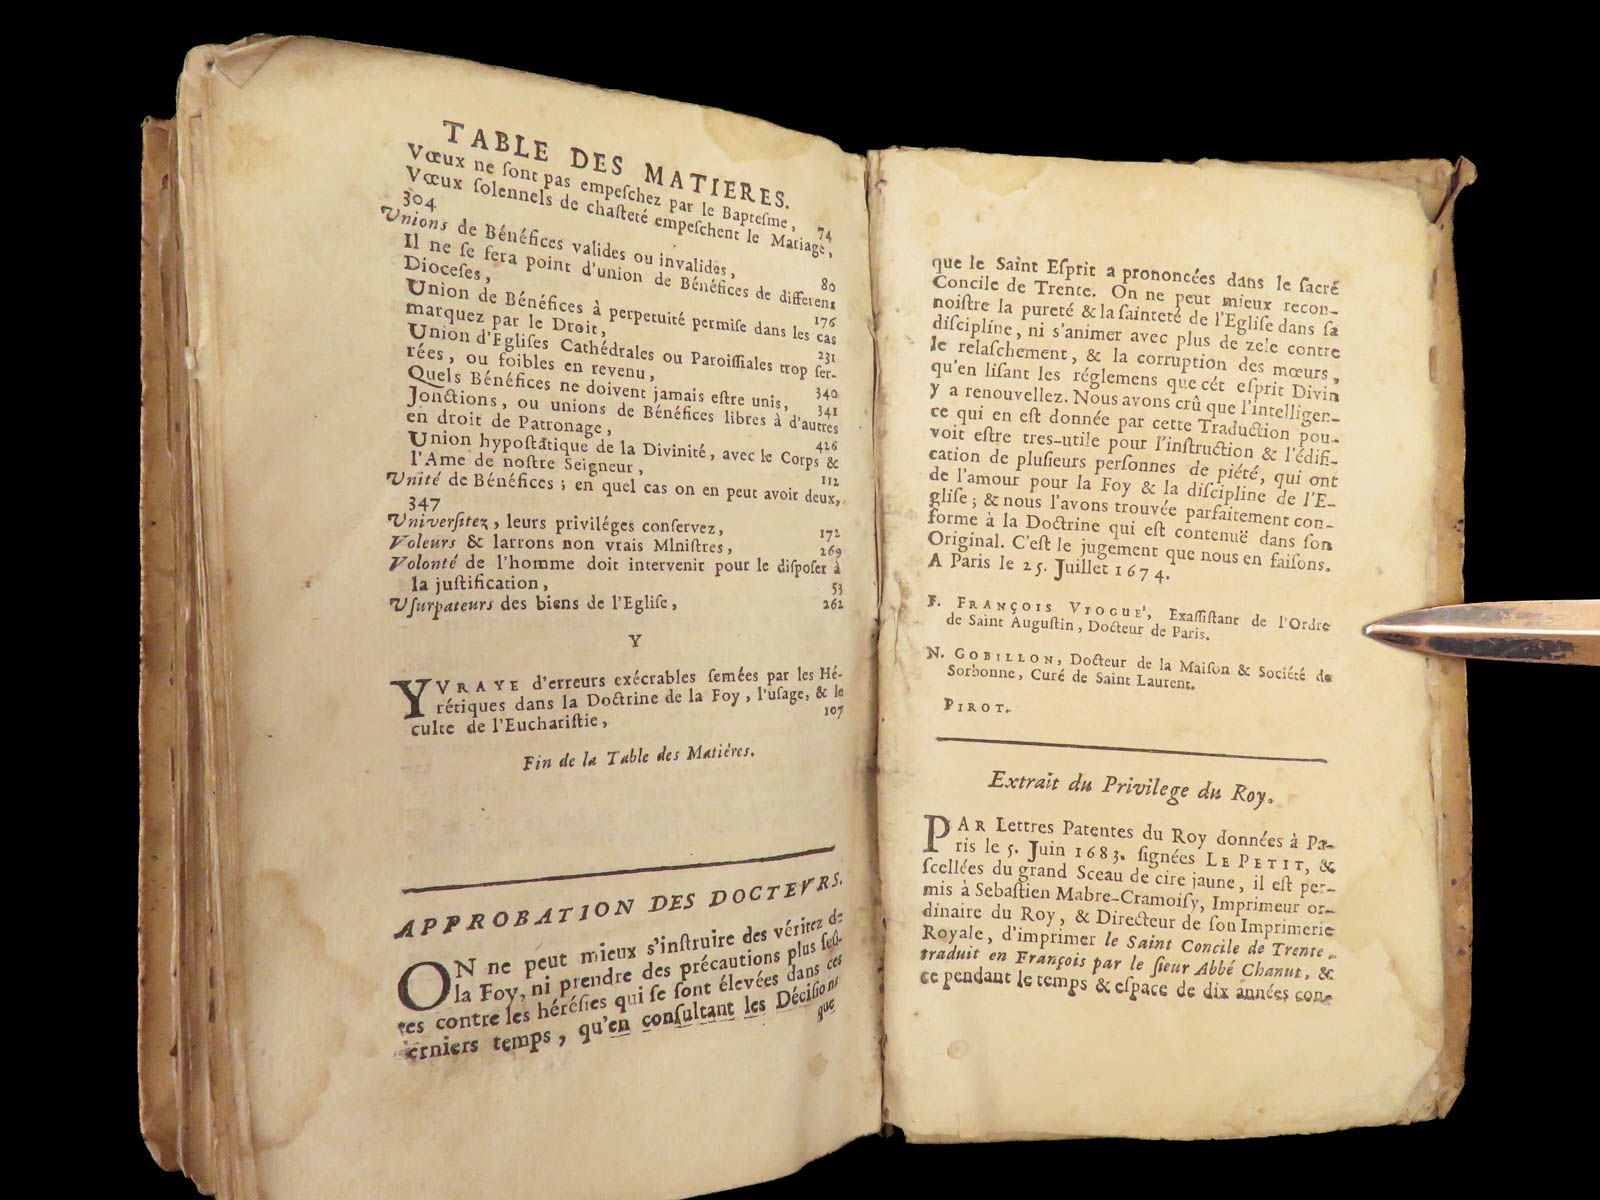 TABLE DES MATIERES.
Vœux ne ſont pas empeſchez par le Bapteſme, 74
Vœux ſolennels de chaſteté empeſchent le Mariage,
304
Unions de Bénéfices valides ou invalides, 80
Il ne ſe fera point d'union de Bénéfices de differens
Dioceſes, 176
Union de Bénéfices à perpetuité permiſe dans les cas
marquez par le Droit, 231
Union d'Egliſes Cathédrales ou Paroiſſiales trop ſer-
rées, ou foibles en revenu, 340
Quels Bénéfices ne doivent jamais eſtre unis, 341
Jonctions, ou unions de Bénéfices libres à d'autres
en droit de Patronage, 426
Union hypoſtatique de la Divinité, avec le Corps &
l'Ame de noſtre Seigneur, 112
Unité de Bénéfices ; en quel cas on en peut avoir deux,
347
Univerſitez, leurs priviléges conſervez, 172
Voleurs & larrons non vrais MIniſtres, 269
Volonté de l'homme doit intervenir pour le diſpoſer à
la juſtification, 53
Vſurpateurs des biens de l'Egliſe, 262
Y
YVRAYE d'erreurs exécrables ſemées par les Hé-
rétiques dans la Doctrine de la Foy, l'uſage, & le
culte de l'Euchariſtie, 107
Fin de la Table des Matiéres.
APPROBATION DES DOCTEVRS.
ON ne peut mieux s'inſtruire des véritez de
la Foy, ni prendre des précautions plus ſeû-
res contre les héréſies qui ſe ſont élevées dans ces
derniers temps, qu'en conſultant les Déciſions
que
que le Saint Eſprit a prononcées dans le ſacré
Concile de Trente. On ne peut mieux recon-
noiſtre la pureté & la ſainteté de l'Egliſe dans ſa
diſcipline, ni s'animer avec plus de zele contre
le relaſchement, & la corruption des mœurs,
qu'en liſant les réglemens que cét eſprit Divin
y a renouvellez. Nous avons crû que l'intelligen-
ce qui en eſt donnée par cette Traduction pou-
voit eſtre tres-utile pour l'inſtruction & l'édifi-
cation de pluſieurs perſonnes de piété, qui ont
de l'amour pour la Foy & la diſcipline de l'E-
gliſe ; & nous l'avons trouvée parfaitement con-
forme à la Doctrine qui eſt contenuë dans ſon
Original. C'eſt le jugement que nous en faiſons.
A Paris le 25. Juillet 1674.
F. FRANÇOIS VIOGUE', Exaſſiſtant de l'Ordre
de Saint Auguſtin, Docteur de Paris.
N. GOBILLON, Docteur de la Maiſon & Société de
Sorbonne, Curé de Saint Laurent.
PIROT.
Extrait du Privilege du Roy.
PAR Lettres Patentes du Roy données à Pa-
ris le 5. Juin 1683. ſignées LE PETIT, &
ſcellées du grand Sceau de cire jaune, il eſt per-
mis à Sebaſtien Mabre-Cramoiſy, Imprimeur or-
dinaire du Roy, & Directeur de ſon Imprimerie
Royale, d'imprimer le Saint Concile de Trente,
traduit en François par le ſieur Abbé Chanut, &
ce pendant le temps & eſpace de dix années con-